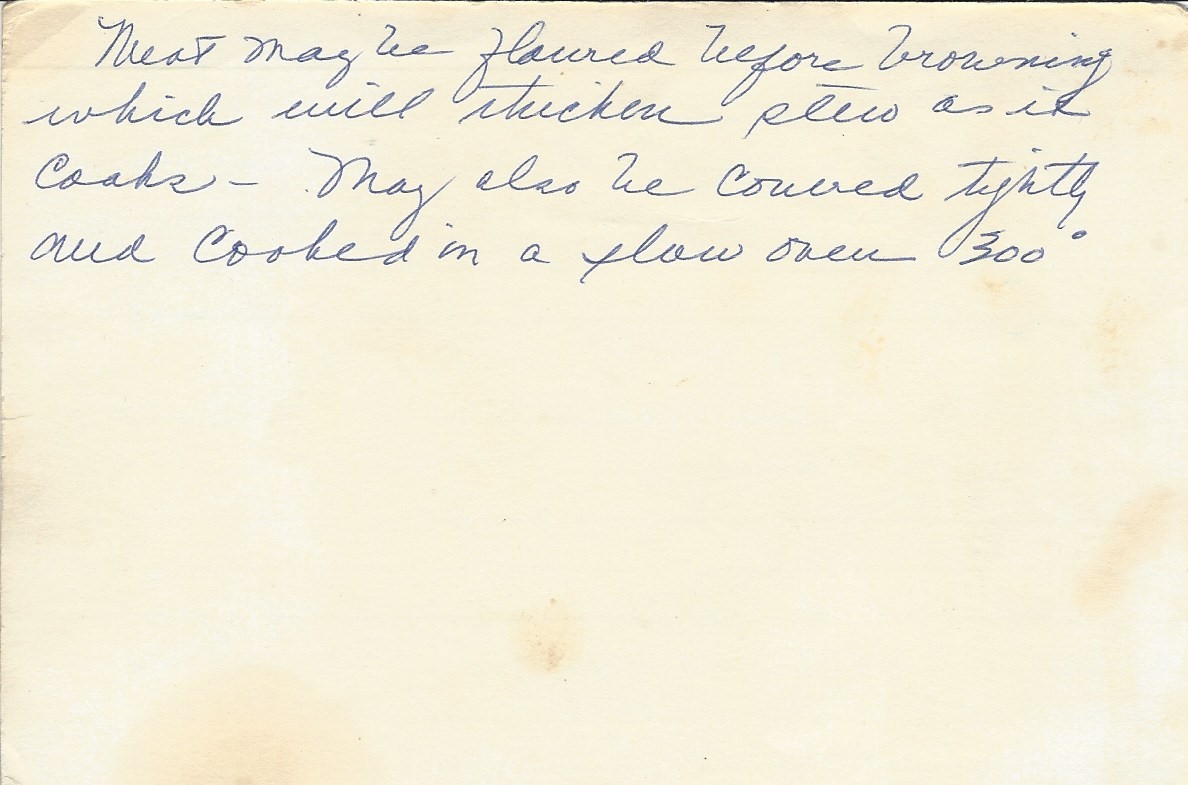 Meat may be floured before browning
which will thicken stew as it
cooks - May also be covered tightly
and cooked in a slow oven 300°